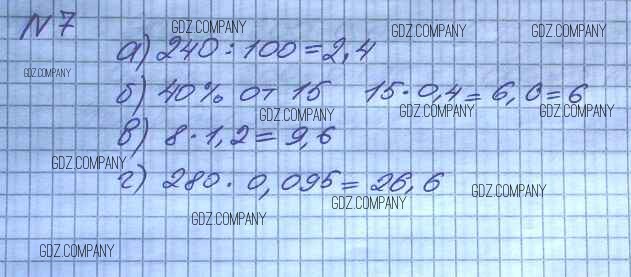 N7
GDZ.COMPANY GDZ.COMPANY GDZ.COMPANY
а) 240 : 100 = 2,4
GDZ.COMPANY
б) 40% от 15 15 · 0,4 = 6,0 = 6
GDZ.COMPANY GDZ.COMPANY GDZ.COMPANY
в) 8 · 1,2 = 9,6
GDZ.COMPANY
г) 280 · 0,095 = 26,6
GDZ.COMPANY GDZ.COMPANY
GDZ.COMPANY
GDZ.COMPANY